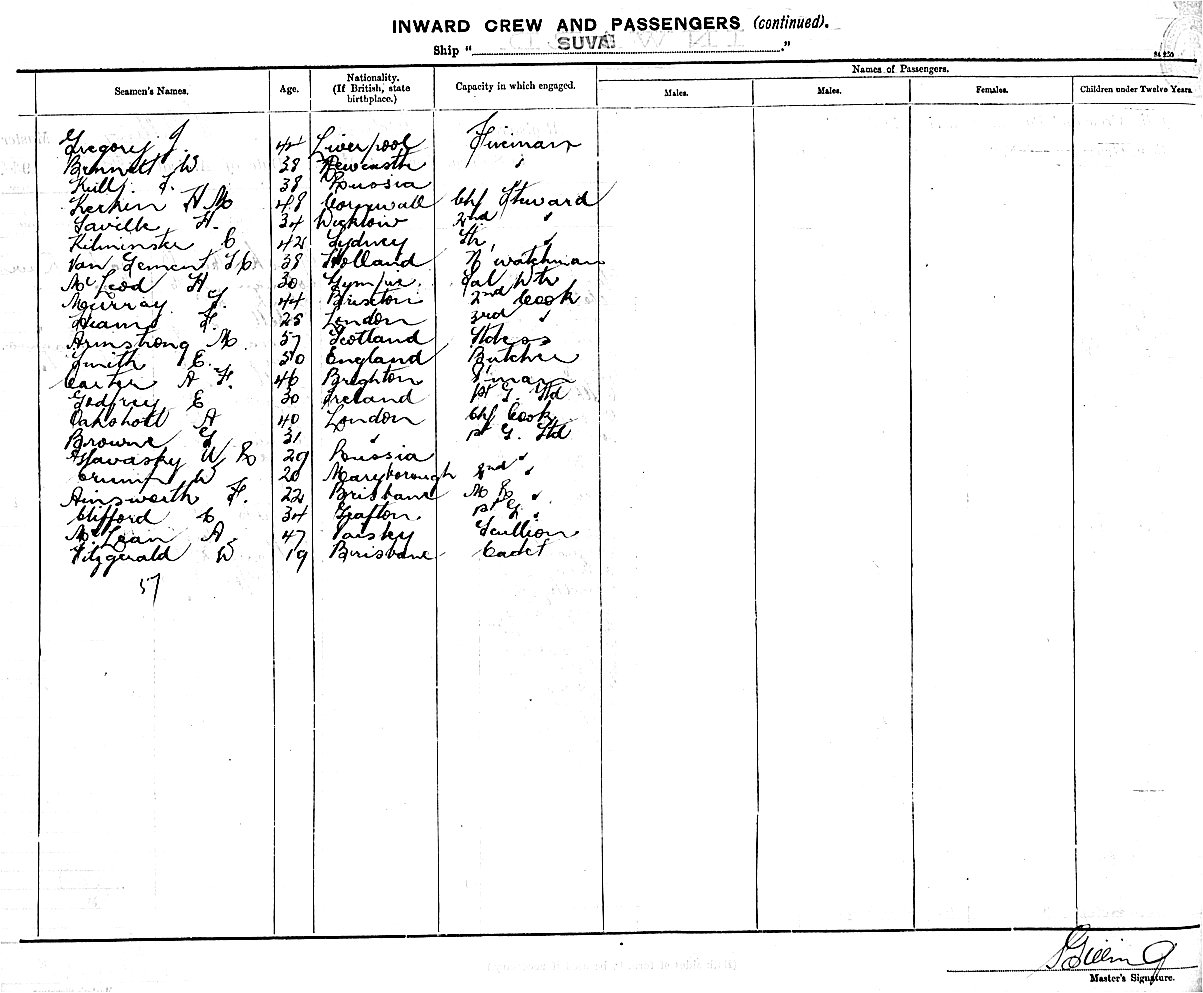 INWARD CREW AND PASSENGERS (continued).
Ship "SUVA"
Seamen's Names. Age. Nationality. (If British, state birthplace.) Capacity in which engaged. Names of Passengers.
Males. Males. Females. Children under Twelve Years
Gregory J. 44 Liverpool Fireman
Bennett W. 38 Newcastle "
38 Russia
H M 48 Cornwall Chf Steward
Saville H. 34 Wicklow 2nd "
C 42 Sydney "
Van 38 Holland N watchman
McLeod H 30 Gympie. Sal Wtr
Murray 44 Brixton 2nd Cook
28 London 3rd "
Armstrong M. 57 Scotland Stdess
Smith E. 50 England Butcher
Carter A F. 46 Brighton
Godfrey E 30 Ireland 1st G. Std
Oakshott A 40 London Chf Cook
Browne 31 " 1st G. Std
W 29 Russia "
Crump W 20 Maryborough 2nd "
Ainsworth F. 22 Brisbane M R "
Clifford C 34 Grafton. 1st G "
McLean A. 47 Paisley Scullion
Fitzgerald W 19 Brisbane Cadet
57
Master's Signature.